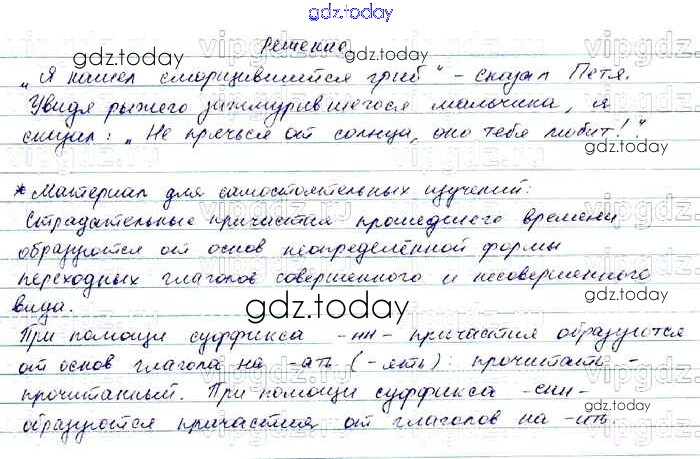 gdz.today
Решение
„Я нашел сморщившийся гриб" – сказал Петя.
Увидя рыжего зажмурившегося мальчика, я
сказал: „Не прячься от солнца, оно тебя любит!".
* Материал для самостоятельных изучений:
Страдательные причастия прошедшего времени
образуются от основ неопределённой формы
переходных глаголов совершенного и несовершенного
вида.
При помощи суффикса -нн- причастия образуются
от основ глагола на -ать (-ять): прочитать -
прочитанный. При помощи суффикса -енн-
образуются причастия от глаголов на -ить.
gdz.today
gdz.today
gdz.today
gdz.today
gdz.today
gdz.today
vipgdz.ru